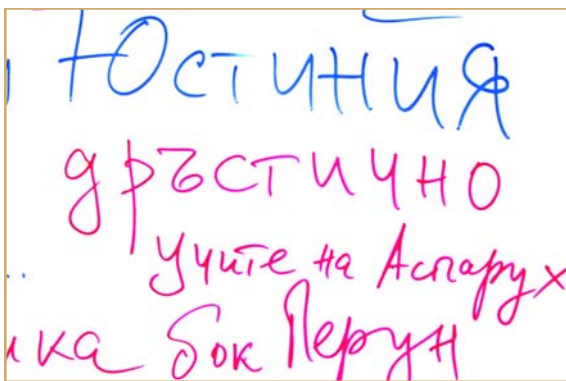 Юстиния
дръстично
учите на Аспарух
бок Перун